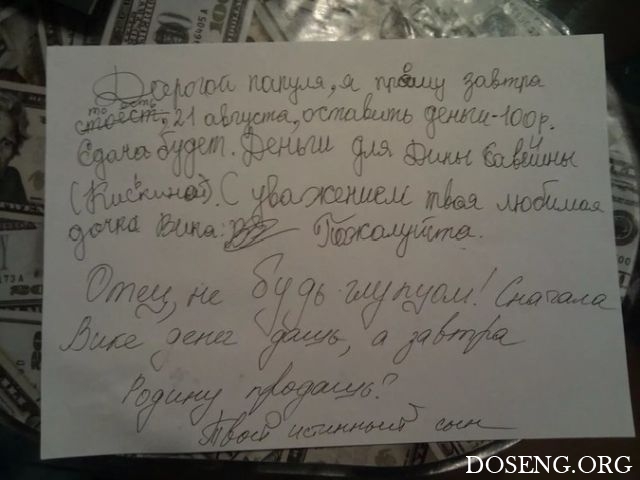 Дорогой папуля, я прошу завтра
то есть
стоест. 21 августа, оставить деньги-100р.
Сдача будет. Деньги для Дины Савейны
(Кискиной). С уважением твоя любимая
дочка Вика. Пожалуйста.
Отец, не будь глупцом! Сначала
Вике денег дашь, а завтра
Родину продашь?
Твой истинный сын
DOSENG.ORG